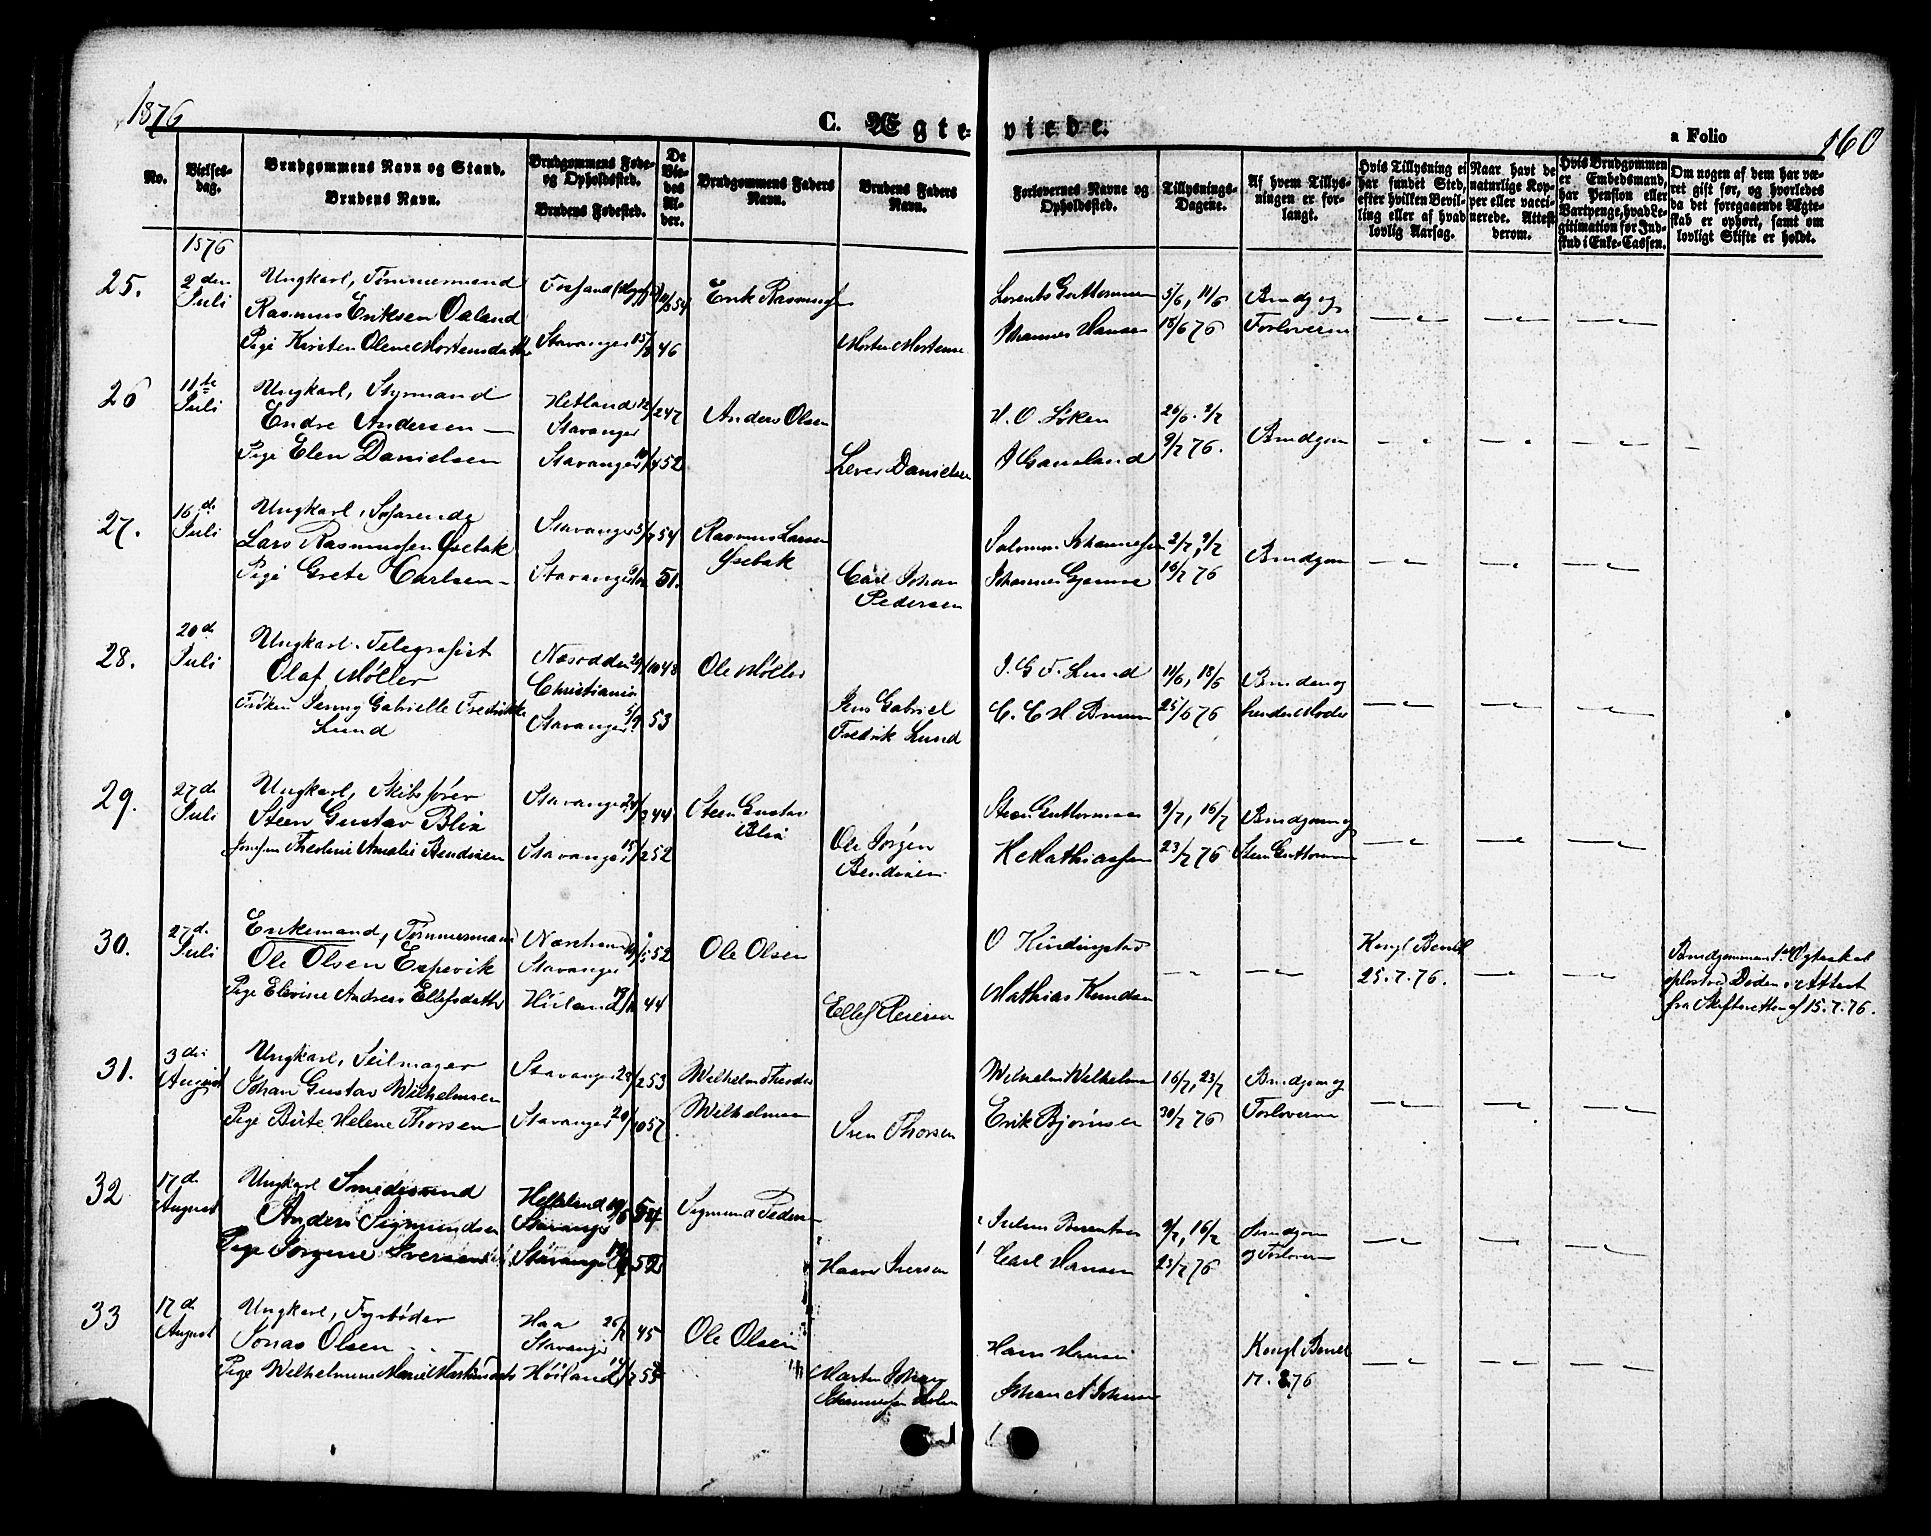 1876
C. Ægte-
viede.
a Folio
160
No.
Vielses-
dag.
Brudgommens Navn og Stand.
Brudens Navn.
Brudgommens Føde-
og Opholdssted.
Brudens Fødested.
De
Vie-
des
Al-
der.
Brudgommens Faders
Navn.
Brudens Faders
Navn.
Forlovernes Navne og
Opholdssted.
Tillysnings-
Dagene.
Af hvem Tillys-
ningen er for-
langt.
Hvis Tillysning ei
har fundet Sted,
efter hvilken Bevil-
ling eller af hvad
lovlig Aarsag.
Naar havt de
naturlige Kop-
per eller vacci-
nerede. Attest
derom.
Hvis Brudgommen
er Embedsmand,
har Pension eller
Vartpenge, hvad Le-
gitimation for Ind-
skud i Enke-Cassen.
Om nogen af dem har væ-
ret gift før, og hvorledes
da det foregaaende Ægte-
skab er ophørt, samt om
lovligt Skifte er holdt.
1876
25.
2den
Juli
Ungkarl, Tømmermand
Rasmus Eriksen Oaland
Pige Kirsten Olene Mortensdatter
Fossand
54
Stavanger 15/8 46
Erik Rasmussen
Morten Mortensen
Lorents Guttormsen
Johannes Hansen
5/6, 11/6
18/6 76
Brudg og
Forloverne
26
11te
Juli
Ungkarl, Styrmand
Endre Andersen
Pige Elen Danielsen
Hetland 12/2 47
Stavanger
Stavanger 10/4 52
Anders Olsen
Lever Danielsen
H. O. Løken
25/6. 2/7
9/7 76.
Brudgom
27.
16de
Juli
Ungkarl, Søfarende
Lars Rasmussen Øsebak
Pige Grete Carlsen
Stavanger 3/7 54
Stavanger 51.
Rasmus Larsen
Øsebak
Carl Johan
Pedersen
Salomon Johannesen
Johannes Gjemre
2/7, 9/7
16/7 76
Brudgom
28.
20de
Juli
Ungkarl. Telegrafist
Olaf Møller
Frøken Jenny Gabrielle Fredrikke
Lund
Næsodden 29/10 48
Christiania
Stavanger 5/9 53
Ole Møller
Jens Gabriel
Fredrik Lund
J. G. F. Lund
C. C. H. Bruun
11/6, 18/6
25/6 76
Bruden og
hendes Moder
29.
27de
Juli
Ungkarl, Skibsfører
Steen Gustav Blix
Jomfru Theoline Amalie Bendixen
Stavanger 44
Stavanger 15/2 52
Steen Gustav
Blix
Ole Jørgen
Bendixen
Steen Guttormsen
K Mathiassen
9/7, 16/7
23/7 76
Brudgom og
Steen Guttormsen
30.
27de
Juli
Enkemand, Tømmermand
Ole Olsen Espevik
Pige Elevine Andrea Ellefsdatter
Næstrand 52
Stavanger
Høiland 19/11 44
Ole Olsen
Ellef Reiersen
O Kindingstad
Mathias Knudsen
Kongl Bevill
25.7.76.
Brudgommens 1ste Ægteskab
opløst ved Døden. Attest
fra Skifteretten af 15.7.76.
31.
3die
August
Ungkarl, Seilmager
Johan Gustav Wilhelmsen
Pige Birte Helene Thorsen
Stavanger 28/2 53
Stavanger 20/10 57
Wilhelm Theodor
Wilhelmsen
Sven Thorsen
Wilhelm Wilhelmsen
Erik Bjørnsen
16/7, 23/7
30/7 76
Brudgom og
Forloverne
32
17de
August
Ungkarl Smedsvend
Anders Sigmundsen
Pige Jørgine Iversen
Hetland 19/6 54
Stavanger
Stavanger 52
Sigmund Pedersen
Haaver Iversen
Julius Berentsen
Carl Hansen
9/7, 16/7
23/7 76
Brudgom
og Forlovern
33
17de
August
Ungkarl, Fyrbøder
Jonas Olsen
Pige Wilhelmine Marie Martinsdatter
Haa 26/2 45
Stavanger
Høiland 55
Ole Olsen
Martin Johan
Hans Hansen
Johan A Johnsen
Kongl Bevill
17.8.76